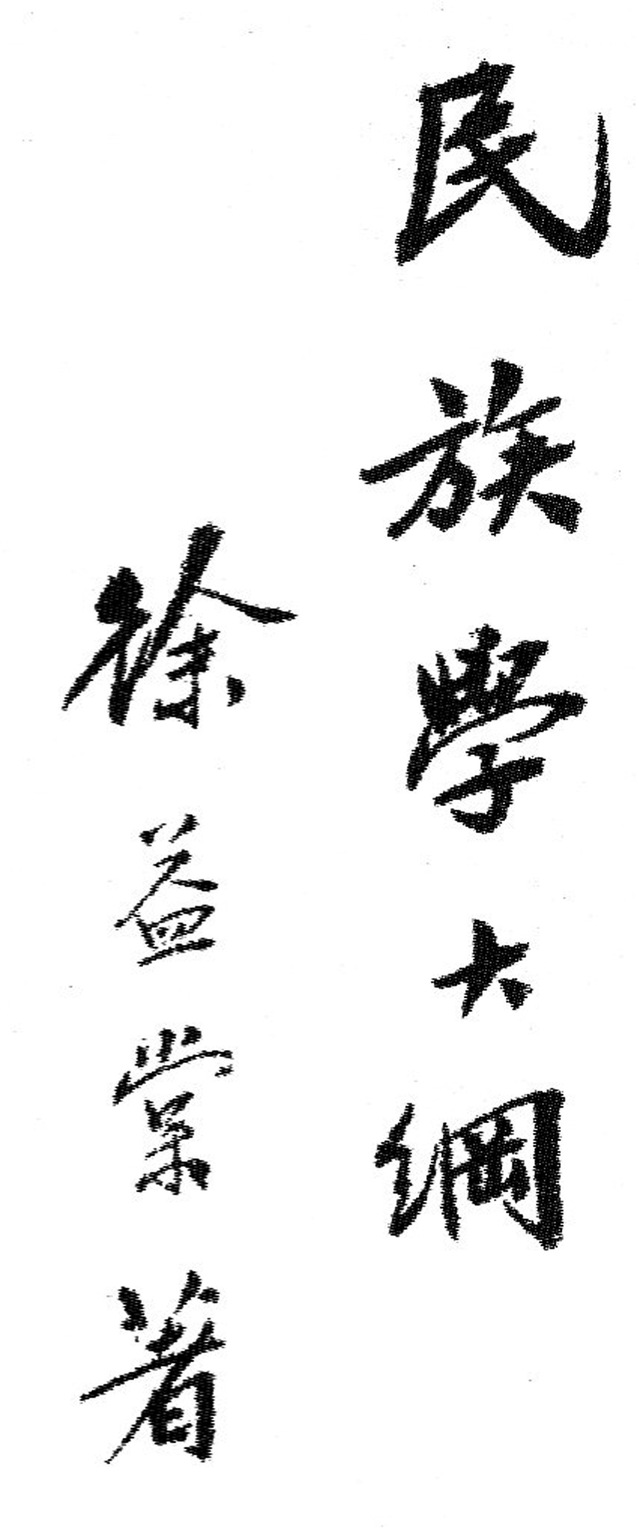 民族學大綱
徐益棠著